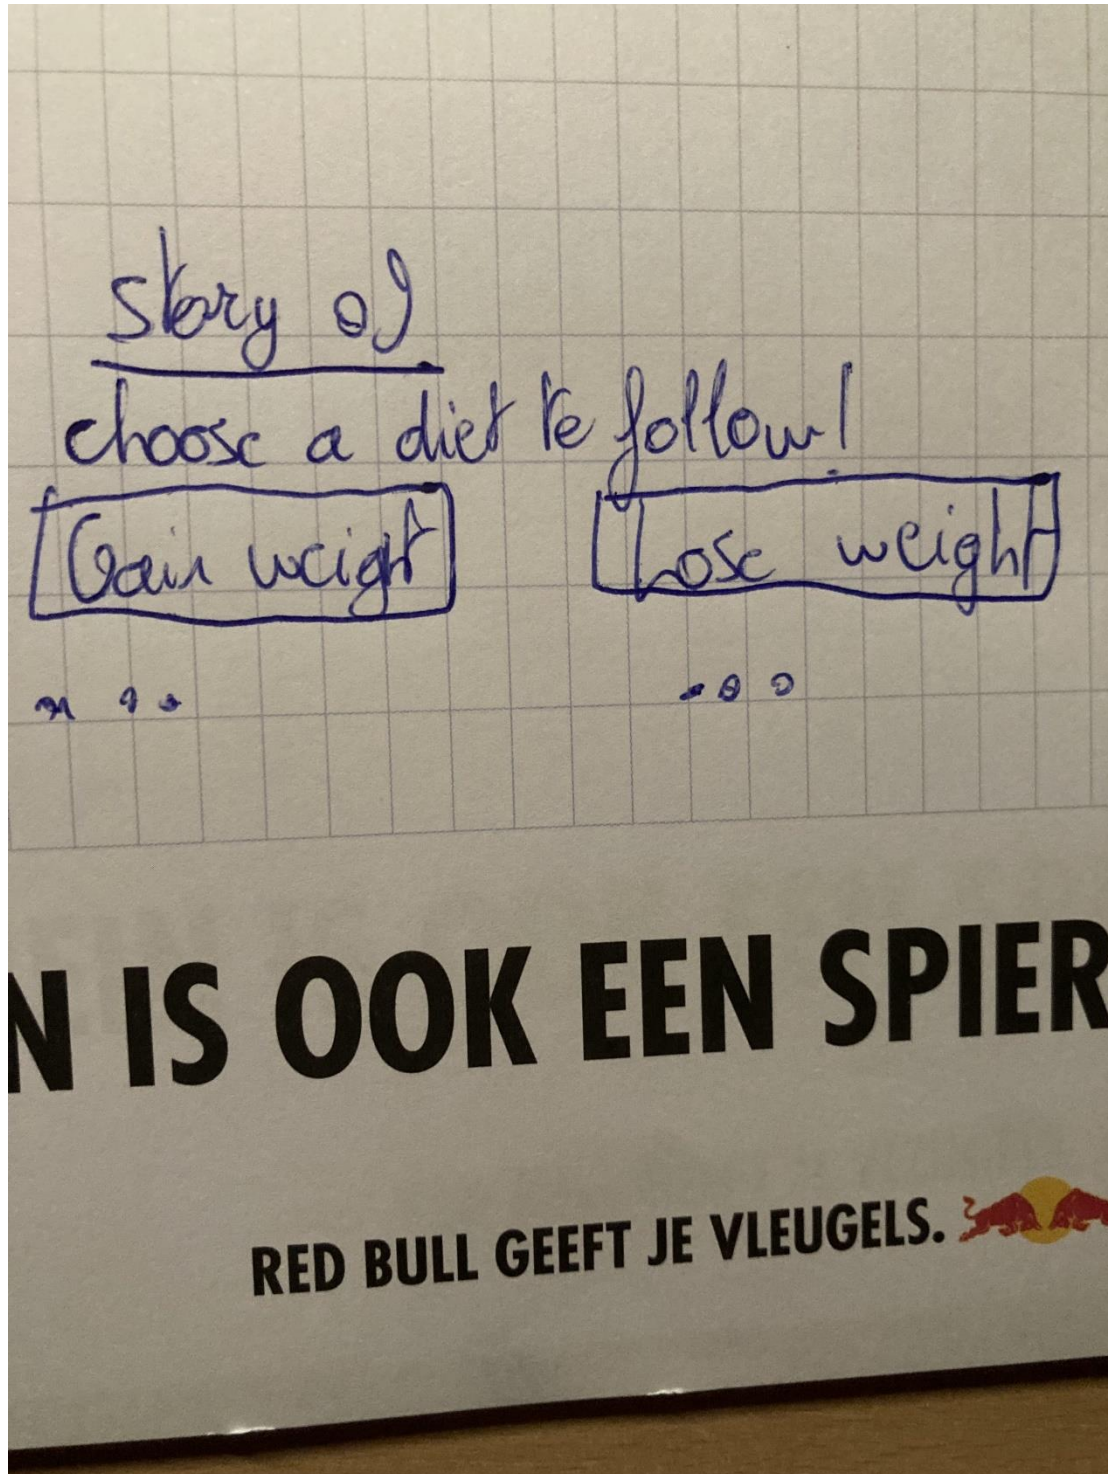 story of
choose a diet to follow!
Gain weight
Lose weight
N IS OOK EEN SPIER
RED BULL GEEFT JE VLEUGELS.